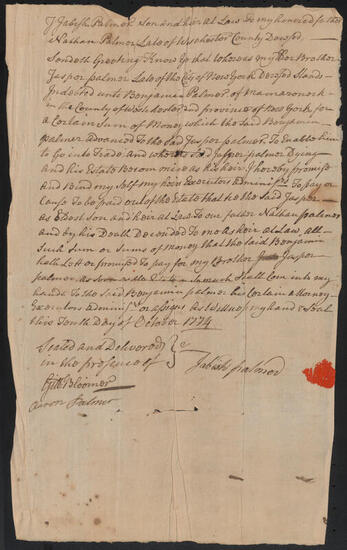 I Jabish Palmer Son and heir At Law To my honered father
Nathan Palmer Late of Weschester County Deceſed
Sendeth Greeting Know Ye that whereas my Brother
Jasper palmer Late of the City of New York Decesed Stands
Indetted unto Benjamin Palmer of Mamaroneck
in the County of Westchester and province of New York for
a Certain Sum of Money which the Said Benjamin
palmer advanced To the Said Jasper palmer To Enable him
To go into Trade and whereas Said Jasper palmer Dying
and his Estate Becom mine as his heir I hereby promise
and Bind my Self my heirs Executors Adminisrs To pay or
Cause To be paid out of the Estate that he the Said Jasper
as Eldest Son and heir at Law To our father Nathan palmer
and by his Death Decended To me as heir at Law, all
Such Sum or Sums of money that the Said Benjamin
hath Lett or promised To pay for my Brother Jasper
palmer as Soon as Estate Shall Com into my
hands To the Said Benjamin palmer his Certain attorney
Executors Adminrs or assigns as witness my hand & Seal
this Tenth Day of October 1774
Sealed and Delivered
in the presence of
Gilbt Bloomer
Aaron Palmer
Jabish palmer